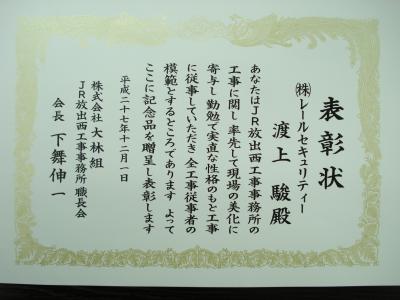 表彰状
㈱レールセキュリティー
渡上 駿殿
あなたはJR放出西工事事務所の
工事に関し 率先して現場の美化に
寄与し 勤勉で実直な性格のもと工事
に従事していただき 全工事従事者の
模範とするところであります よって
ここに記念品を贈呈し表彰します
平成二十七年十二月一日
株式会社 大林組
JR放出西工事事務所 職長会
会長 下舞伸一